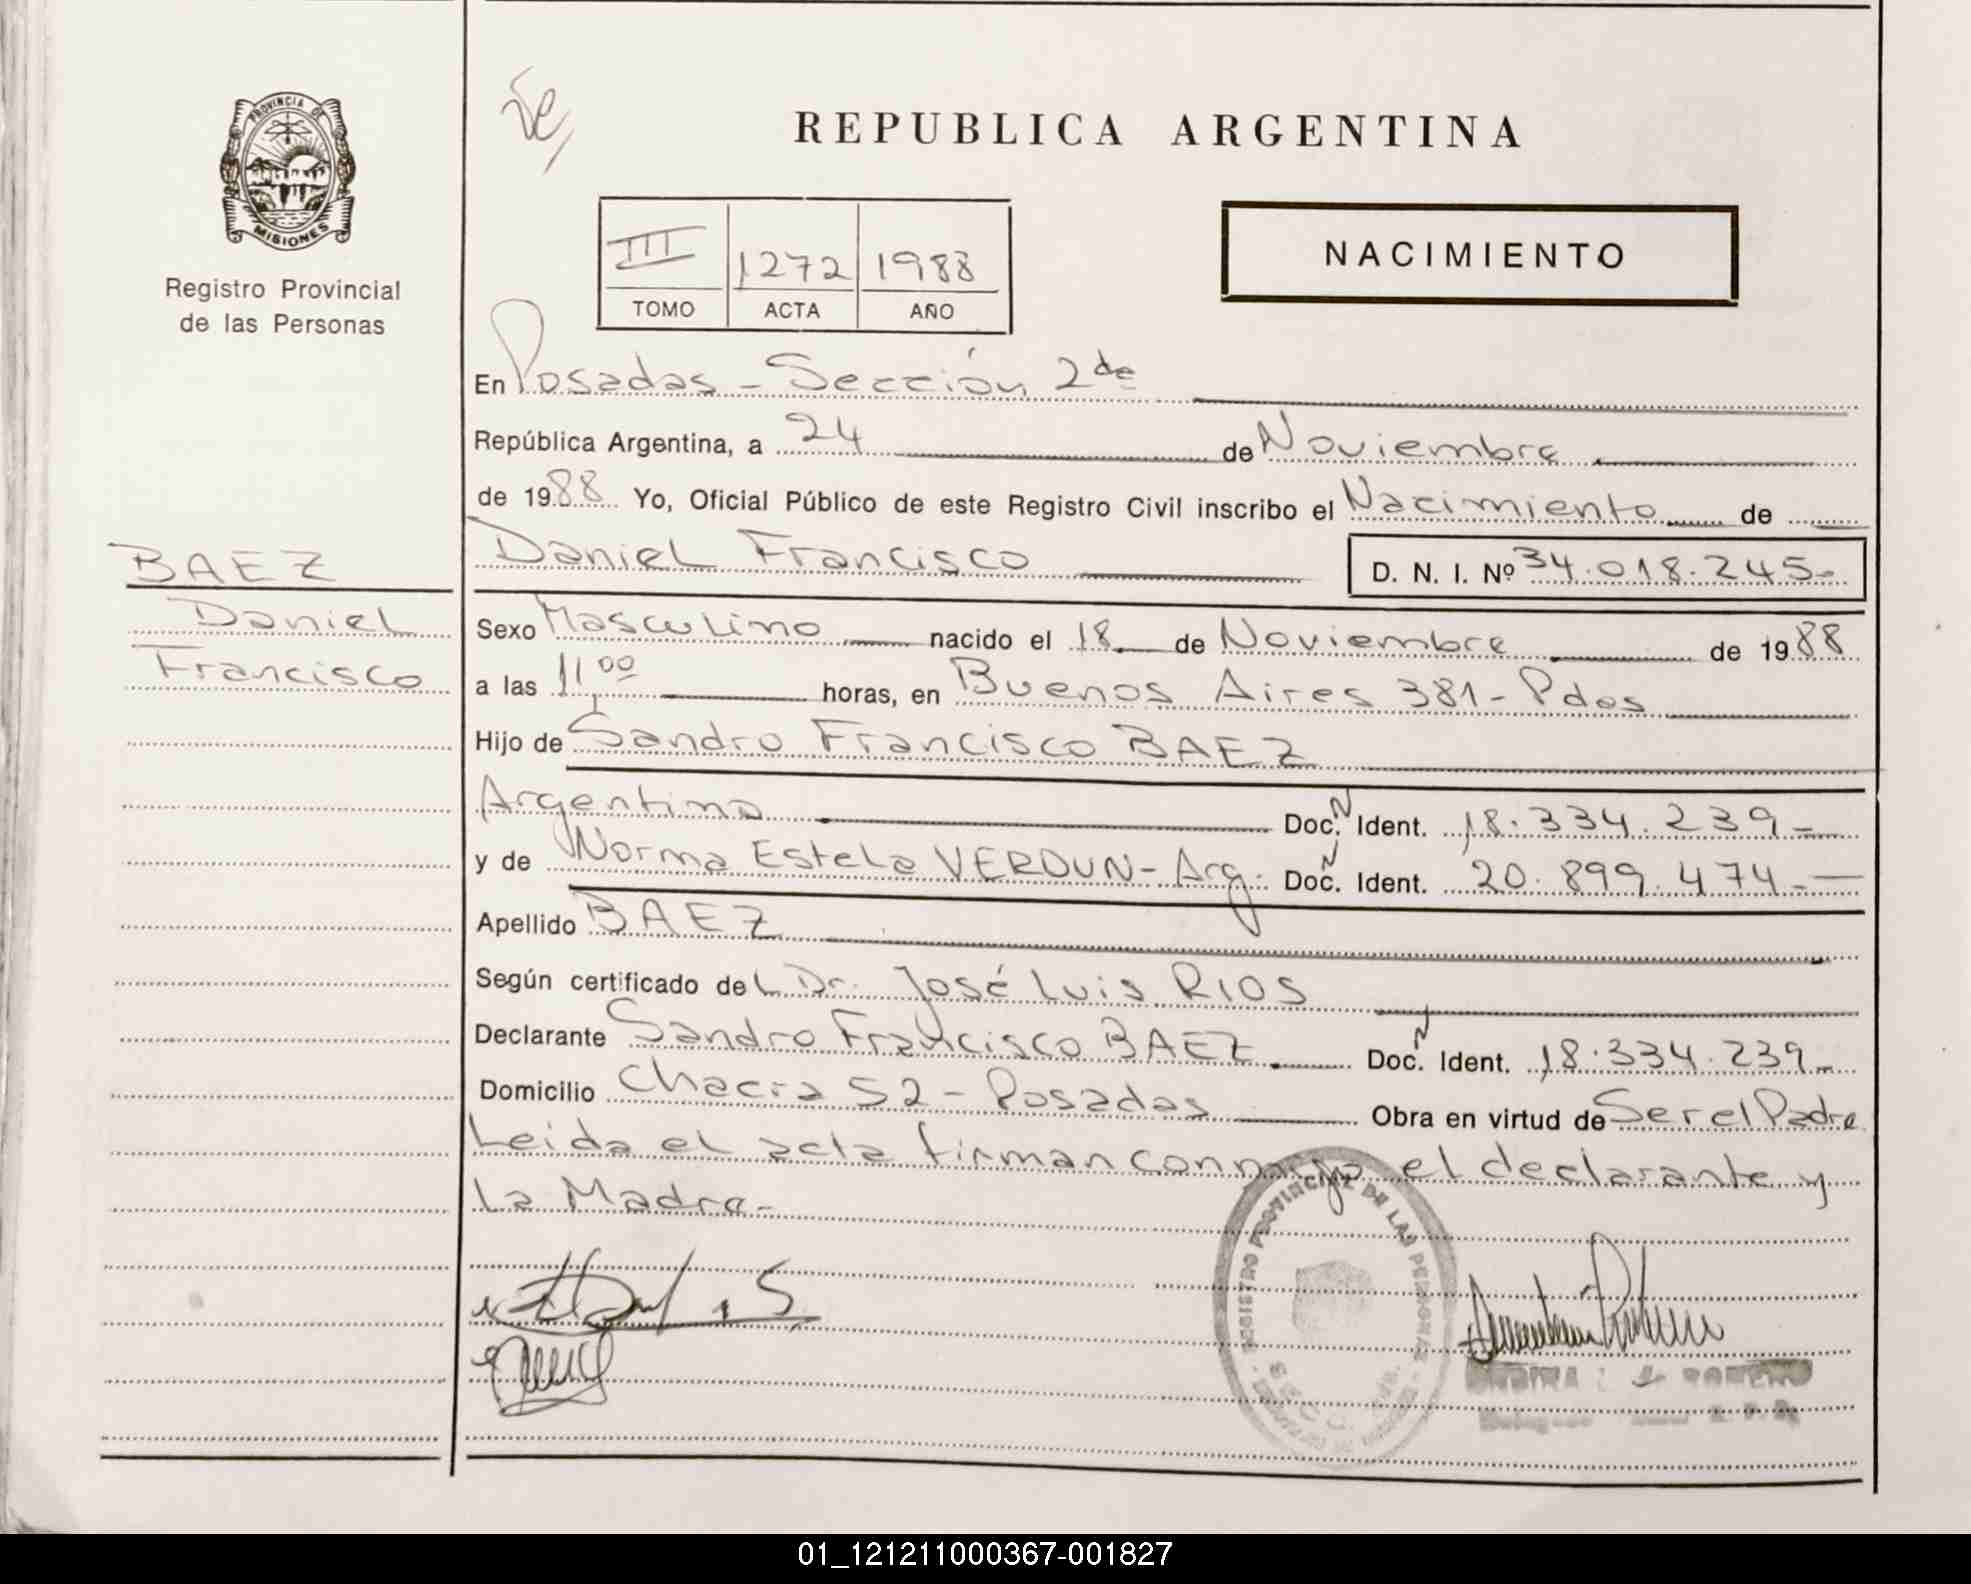 PROVINCIA DE
MISIONES
Registro Provincial
de las Personas
REPUBLICA ARGENTINA
NACIMIENTO
III 1272 1988
TOMO ACTA AÑO
En Posadas - Sección 2da
República Argentina, a 24 de Noviembre
de 1988 Yo, Oficial Público de este Registro Civil inscribo el Nacimiento de
BAEZ
Daniel
Francisco
Daniel Francisco D. N. I. Nº 34.018.245-
Sexo Masculino nacido el 18 de Noviembre de 1988
a las 11,00 horas, en Buenos Aires 381 - Pdas
Hijo de Sandro Francisco BAEZ
Argentino Doc. N Ident. 18.334.239-
y de Norma Estela VERDUN - Arg. Doc. N Ident. 20.899.474-
Apellido BAEZ
Según certificado del Dr. José Luis RIOS
Declarante Sandro Francisco BAEZ Doc. N Ident. 18.334.239-
Domicilio Chacra 52 - Posadas Obra en virtud de Ser el Padre
Leida el acta firman conmigo el declarante y
La Madre-
REGISTRO PROVINCIAL DE LAS PERSONAS
ROMERO
01_121211000367-001827